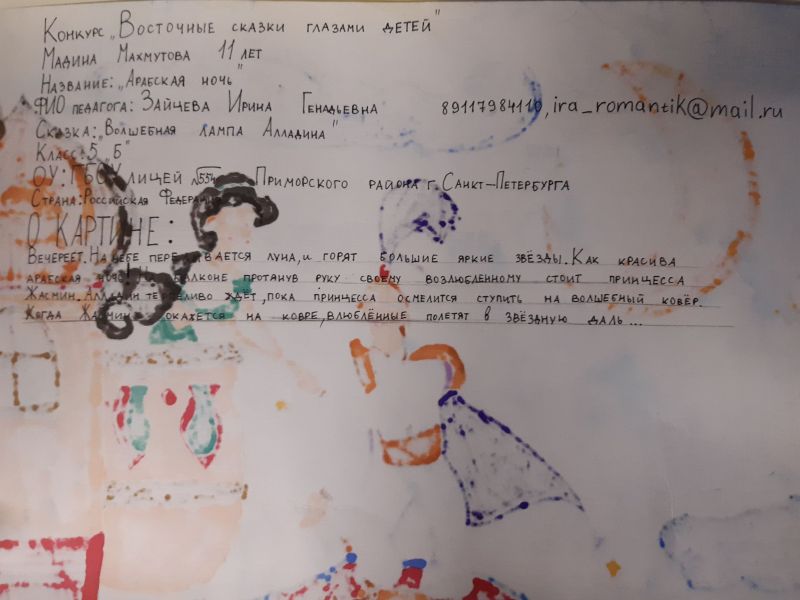 Конкурс „Восточные сказки глазами детей"
Мадина Махмутова 11 лет
Название: „Арабская ночь"
ФИО педагога: Зайцева Ирина Генадьевна 89117984110, ira_romantik@mail.ru
Сказка: „Волшебная лампа Алладина"
Класс: 5 „Б"
ОУ: ГБОУ лицей №554 Приморского района г. Санкт-Петербурга
Страна: Российская Федерация
О КАРТИНЕ:
Вечереет. На небе переливается луна, и горят большие яркие звёзды. Как красива
арабская ночь! На балконе протянув руку своему возлюбленному стоит принцесса
Жасмин. Алладин терпеливо ждёт, пока принцесса осмелится ступить на волшебный ковёр.
Когда Жасмин окажется на ковре, влюблённые полетят в звёздную даль...